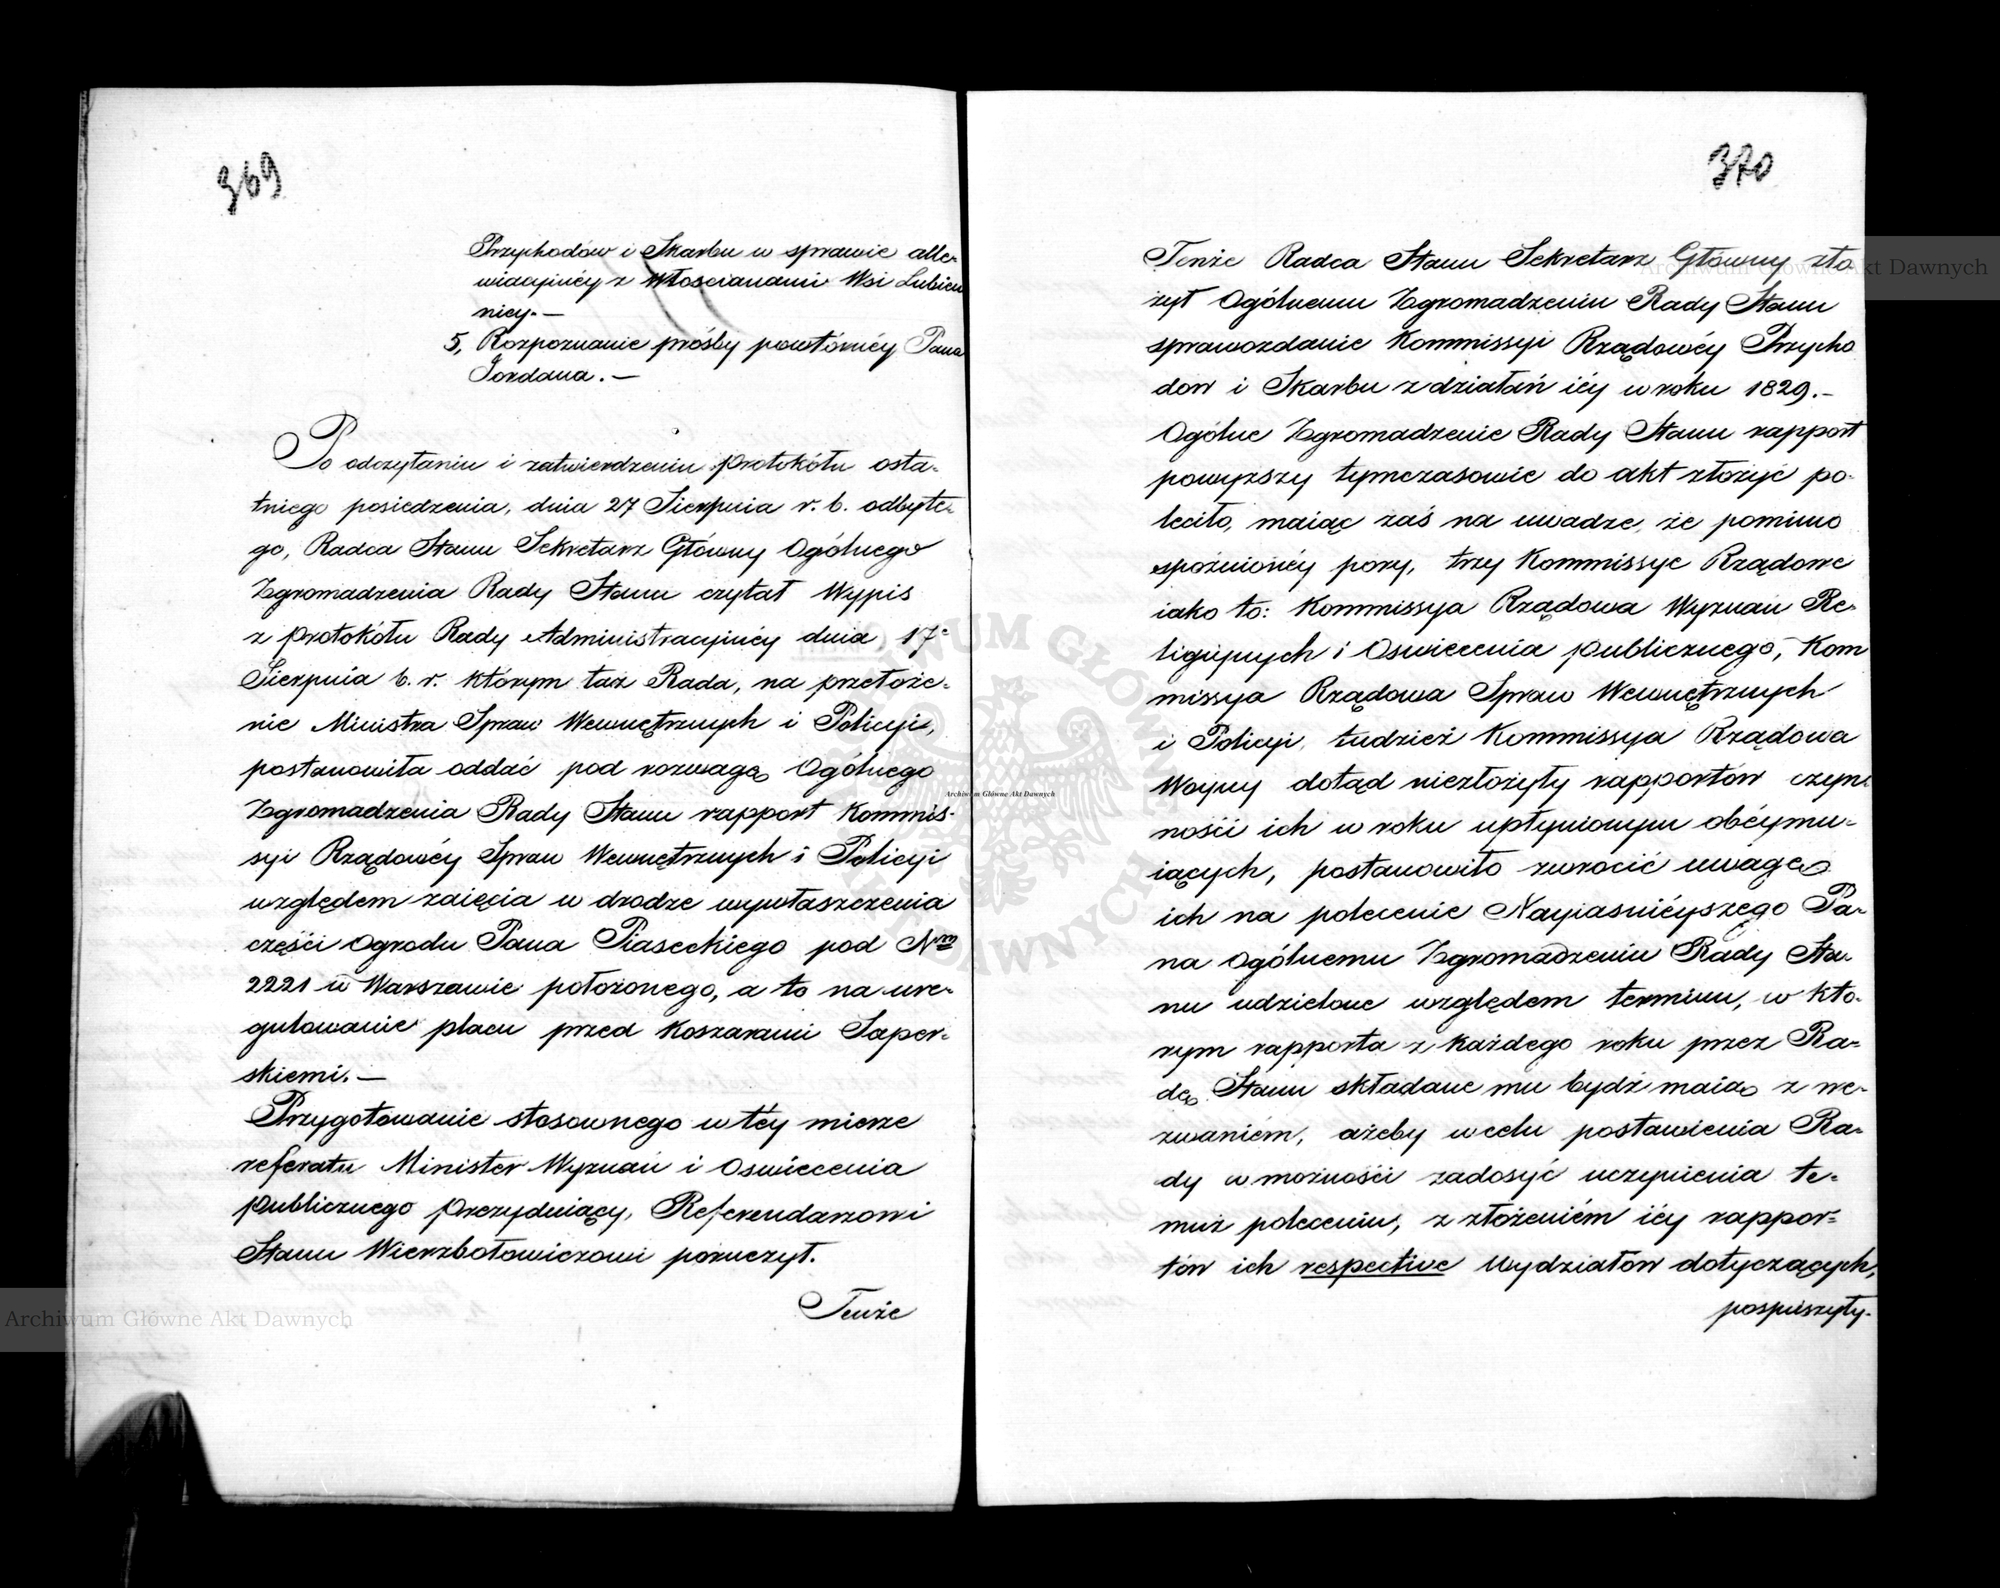 369
Przychodów i Skarbu w sprawie alle-
wiacyjnéy z Włoscianami Wsi Lubien
nicy. —
5, Rozpoznanie próśby powtórnéy Pana
Jordana. —
Po odczytaniu i zatwierdzeniu protokółu osta-
tniego posiedzenia, dnia 27 Sierpnia r. b. odbyte-
go, Radca Stanu Sekretarz Główny Ogólnego
Zgromadzenia Rady Stanu czytał Wypis
z protokółu Rady Administracyjnéy dnia 17-
Sierpnia b. r. którym taż Rada, na przełoże-
nie Ministra Spraw Wewnętrznych i Policyi,
postanowiła oddać pod rozwagę Ogólnego
Zgromadzenia Rady Stanu rapport Kommis-
syi Rządowéy Spraw Wewnętrznych i Policyi
względem zaięcia w drodze wywłaszczenia
częśći Ogrodu Pana Piaseckiego pod Nrm
2221 w Warszawie położonego, a to na ure-
gulowanie placu przed Koszarami Saper-
skiemi. —
Przygotowanie stosownego w téy mierze
referatu Minister Wyznań i Oswiecenia
publicznego prezyduiący, Referendarzowi
Stanu Wierzbołowiczowi poruczył.
Tenże
370
Tenże Radca Stanu Sekretarz Główny zło
żył Ogólnemu Zgromadzeniu Rady Stanu
sprawozdanie Kommissyi Rządowéy Przycho
dow i Skarbu z działań iéy w roku 1829. –
Ogólne Zgromadzenie Rady Stanu rapport
powyższy tymczasowie do akt złożyć po-
leciło, maiąc zaś na uwadze, że pomimo
spóźnionéy pory, trzy Kommissye Rządowe
iako to: Kommissya Rządowa Wyznań Re-
ligiynych i Oswiecenia publicznego, Kom
missya Rządowa Spraw Wewnętrznych
i Policyi, tudzież Kommissya Rządowa
Woyny dotąd niezłożyły rapportów czyn-
nośći ich w roku upłynionym obéymu-
iących, postanowiło zwrocić uwagę
ich na polecenie Nayiaśniéyszego Pa-
na Ogólnemu Zgromadzeniu Rady Sta-
nu udzielone względem terminu, w któ-
rym rapporta z każdego roku przez Ra-
dę Stanu składane mu bydź maią z we-
zwaniém, ażeby w celu postawienia Ra-
dy w możnośći zadosyć uczynienia te-
muż poleceniu, z złożeniém iéy rappor-
tów ich respective Wydziałów dotyczących,
pospieszyły.
Archiwum Główne Akt Dawnych
Archiwum Główne Akt Dawnych
Archiwum Główne Akt Dawnych
ARCHIWUM GŁÓWNE AKT DAWNYCH